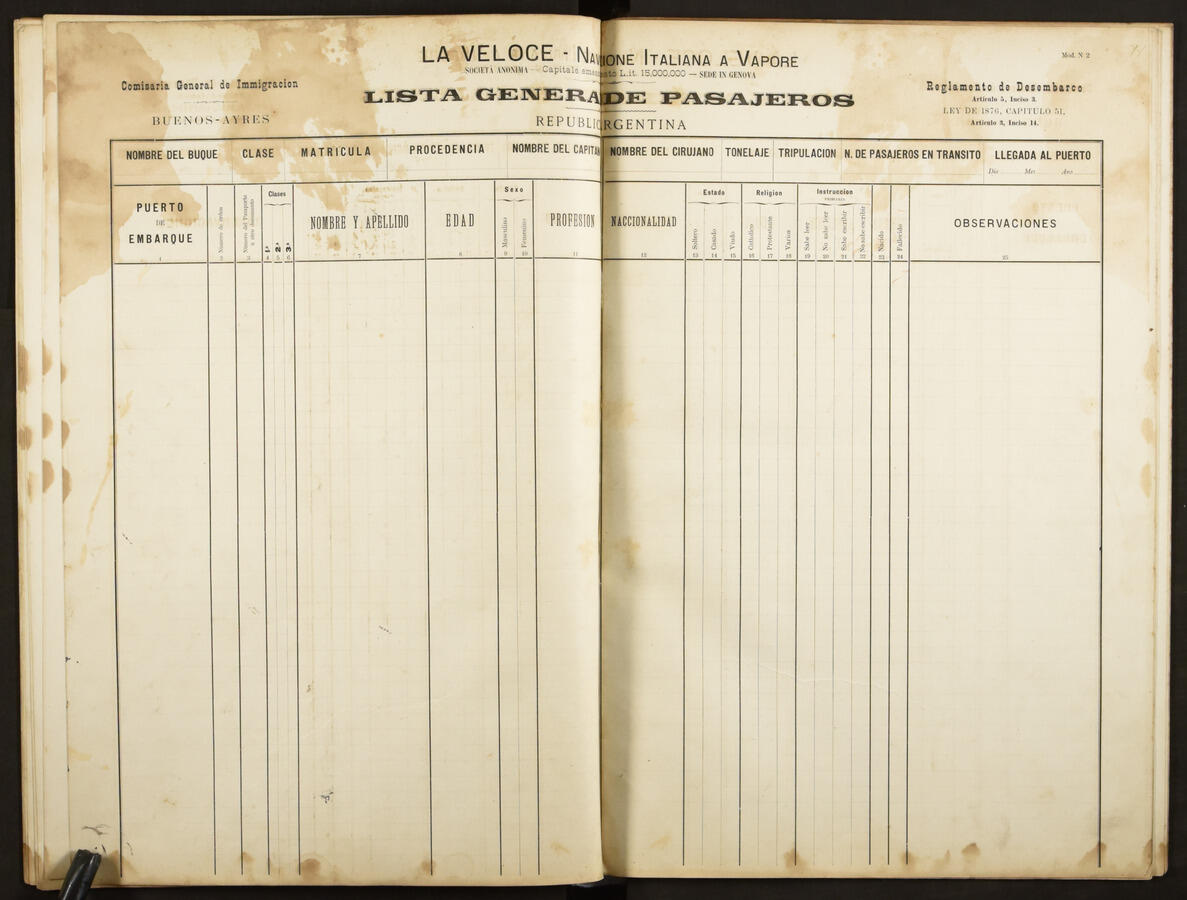 LA VELOCE - NAV IONE ITALIANA A VAPORE
SOCIETÀ ANONIMA — Capitale to L.it. 15,000,000 — SEDE IN GENOVA
Mod. N 2
Comisaria General de Immigracion
BUENOS-AYRES
LISTA GENERA DE PASAJEROS
REPUBLIC RGENTINA
Reglamento de Desembarco
Articulo 5, Inciso 3.
LEY DE 1876, CAPITULO 51,
Articulo 3, Inciso 14.
NOMBRE DEL BUQUE CLASE MATRICULA PROCEDENCIA NOMBRE DEL CAPITAN NOMBRE DEL CIRUJANO TONELAJE TRIPULACION N. DE PASAJEROS EN TRANSITO LLEGADA AL PUERTO
Dia Mes Ano
PUERTO
DE
EMBARQUE
Número de orden
Número del Pasaporte
Clases
1ª 2ª 3ª
NOMBRE Y APELLIDO
EDAD
Sexo
Masculino Femenino
PROFESION
NACCIONALIDAD
Estado
Soltero Casado Viudo
Religion
Catholico Protestante Varios
Instruccion
PRIMARIA
Sabe leer No sabe leer Sabe escribir No sabe escribir
Nacido
Fallecido
OBSERVACIONES
1 2 3 4 5 6 7 8 9 10 11 12 13 14 15 16 17 18 19 20 21 22 23 24 25